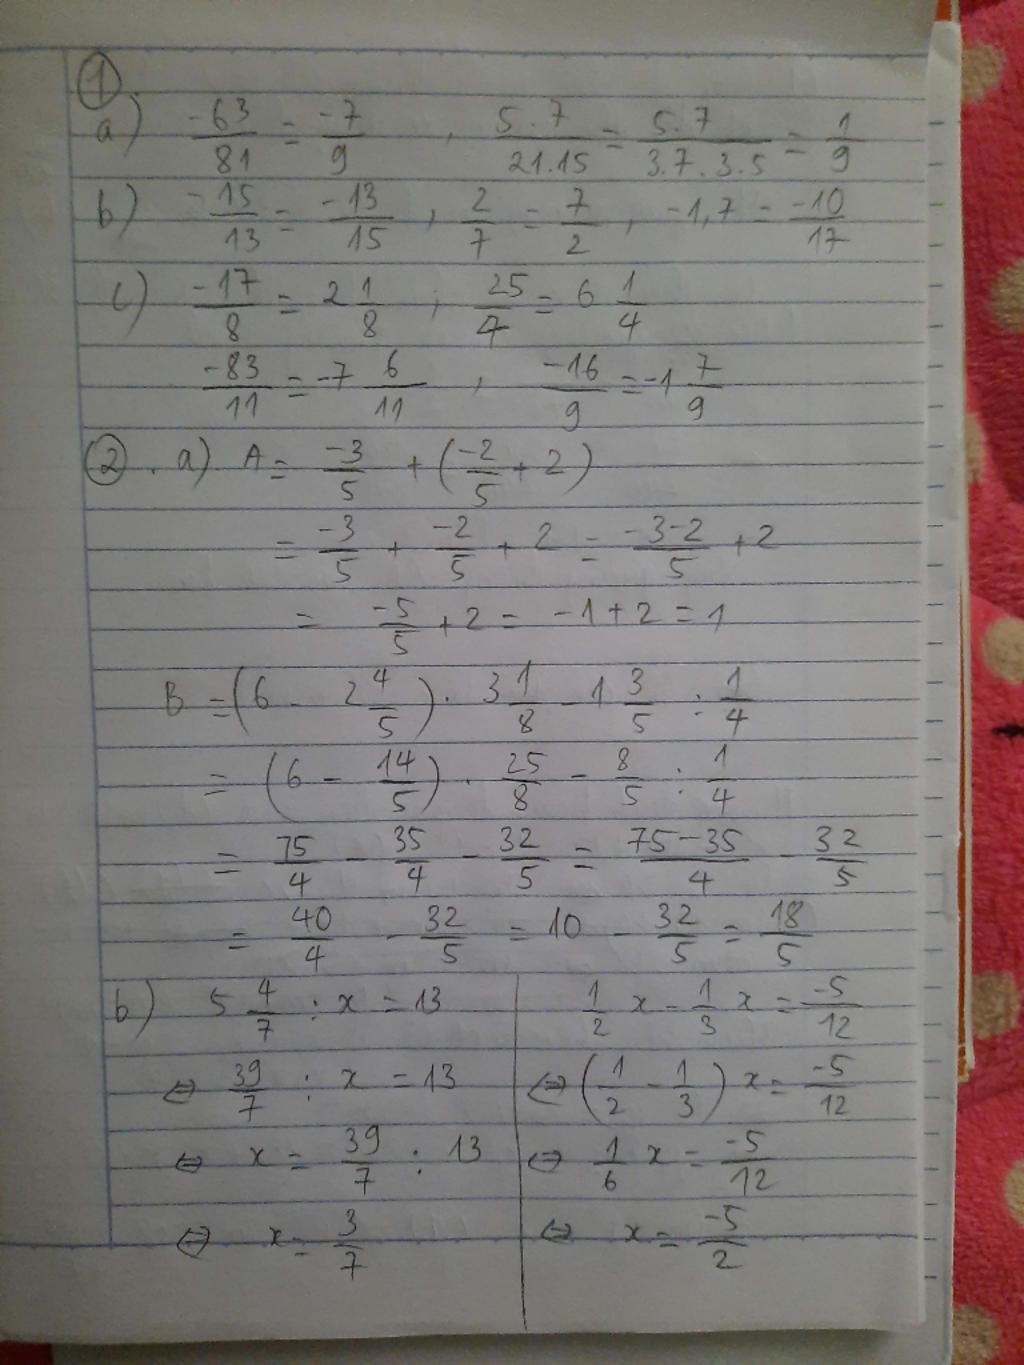 1
a) -63/81 = -7/9 , 5.7/21.15 = 5.7/3.7.3.5 = 1/9
b) -15/13 = -13/15 ; 2/7 = 7/2 , -1,7 = -10/17
c) -17/8 = 2 1/8 ; 25/4 = 6 1/4
-83/11 = -7 6/11 , -16/9 = -1 7/9
2. a) A = -3/5 + (-2/5 + 2)
= -3/5 + -2/5 + 2 = -3-2/5 + 2
= -5/5 + 2 = -1 + 2 = 1
B = (6 - 2 4/5) . 3 1/8 - 1 3/5 : 1/4
= (6 - 14/5) . 25/8 - 8/5 : 1/4
= 75/4 - 35/4 - 32/5 = 75-35/4 - 32/5
= 40/4 - 32/5 = 10 - 32/5 = 18/5
b) 5 4/7 : x = 13
⇔ 39/7 : x = 13
⇔ x = 39/7 : 13
⇔ x = 3/7
1/2 x - 1/3 x = -5/12
⇔ (1/2 - 1/3) x = -5/12
⇔ 1/6 x = -5/12
⇔ x = -5/2